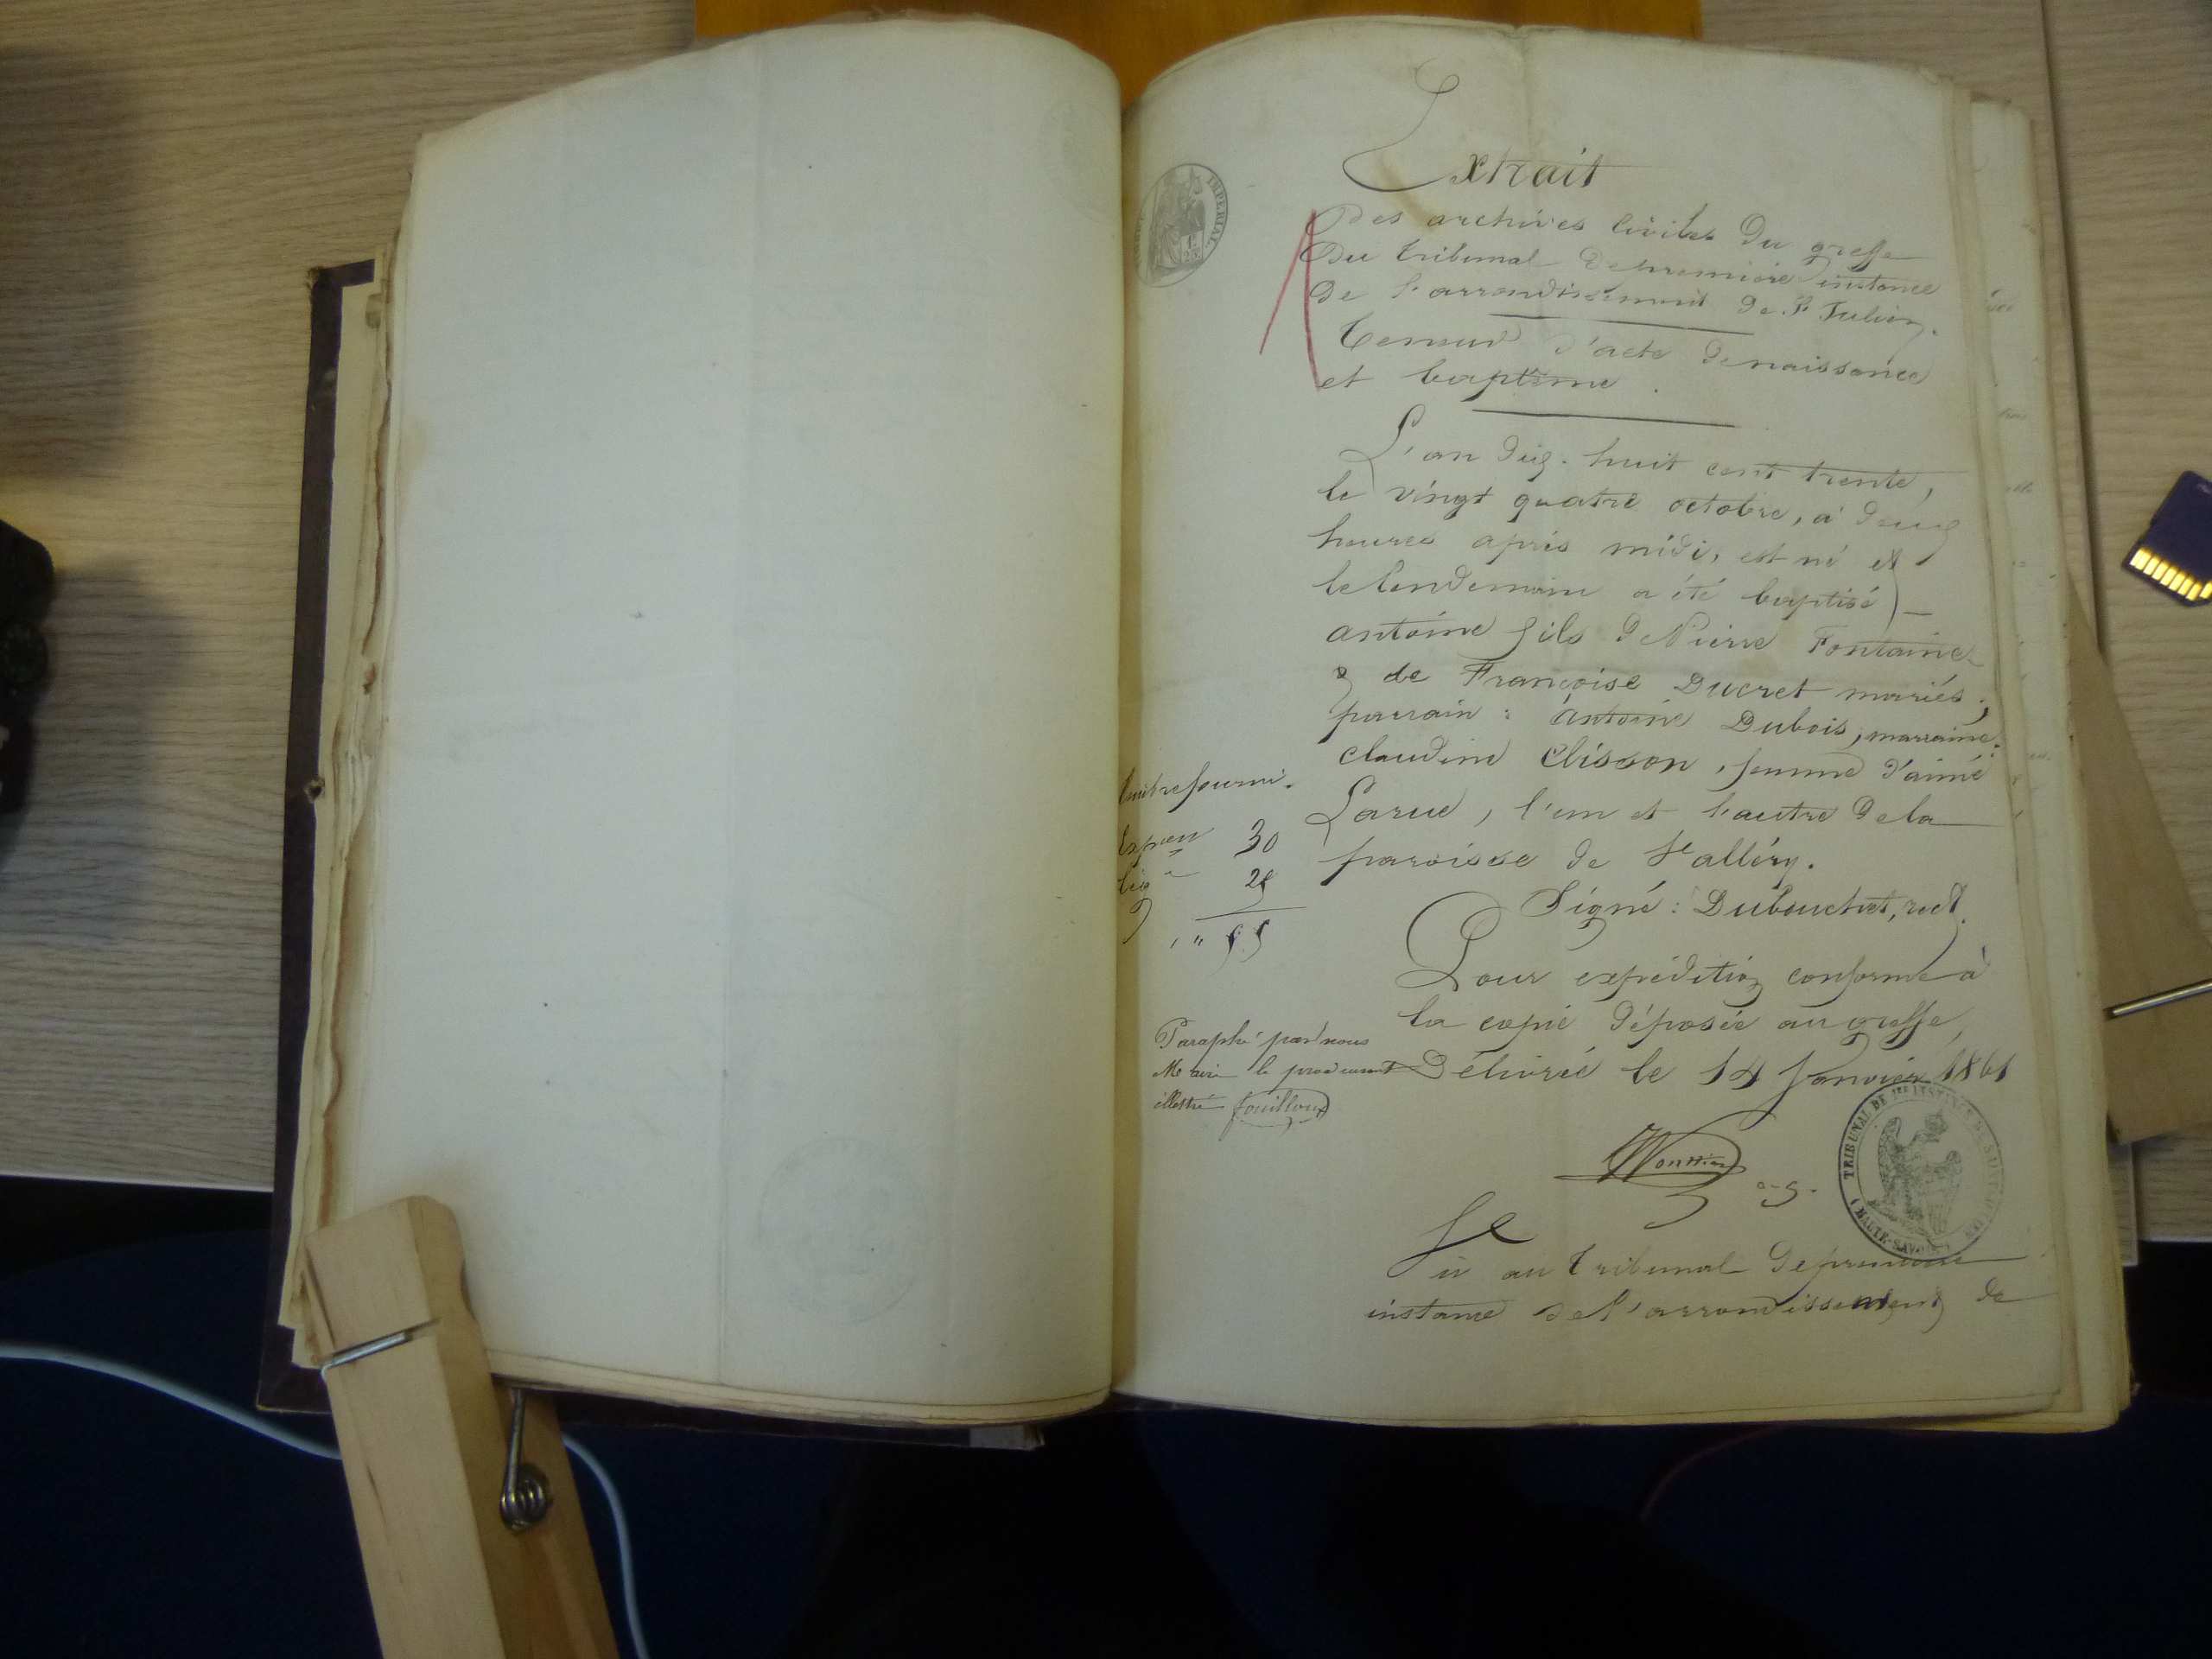 Extrait
des archives civiles du greffe
du tribunal de premiere instance
de l'arrondissement de St Julien.
Teneur d'acte de naissance
et baptême.
L'an dix-huit cent trente,
le vingt quatre octobre, à deux
heures après midi, est né et
le lendemain a été baptisé
antoine fils de Pierre Fontaine
& de Françoise Ducret mariés;
parrain: antoine Dubois, marraine:
claudine Clisson, femme d'aimé
Larue, l'un et l'autre de la
paroisse de
Signé: Dubouchet, rect.
Pour expédition conforme à
la copie déposée au greffe,
Délivré le 14 Janvier 1861
a-g.
instance de l'arrondissement de
au tribunal de première
timbre fourni.
30
25
" 55
Paraphé par nous
Maire le procureur
illettré fouilloux
IMPERIAL
1 f.
25
TRIBUNAL DE 1ERE INSTANCE DE SAINT JULIEN
(HAUTE-SAVOIE)